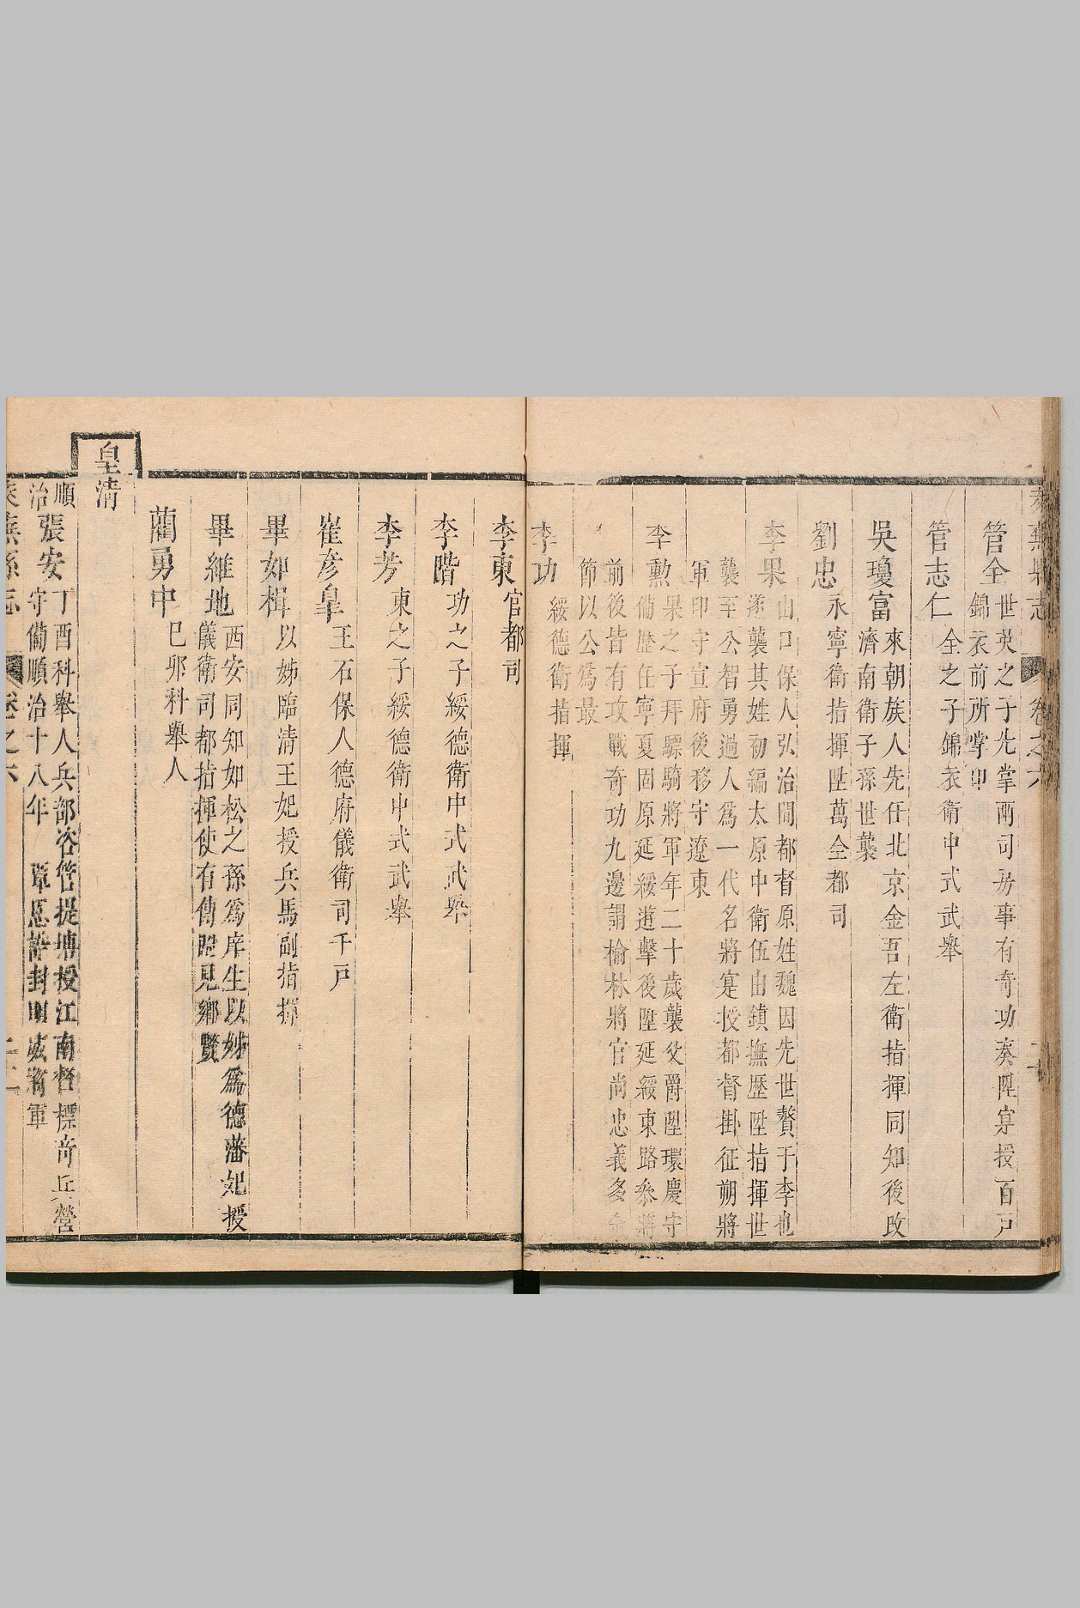 萊蕪縣志 卷之六
管全 世英之子先掌兩司房事有奇功奏陞寔授百戶
錦衣前所掌印
管志仁 全之子錦衣衛中式武舉
吳瓊富 來朝族人先任北京金吾左衛指揮同知後改
濟南衛子孫世襲
劉忠 永寧衛指揮陞萬全都司
李果 山口保人弘治間都督原姓魏因先世贅于李也
遂襲其姓初編太原中衛伍由鎮撫歷陞指揮世
襲至公智勇過人爲一代名將寔授都督掛征朔將
軍印守宣府後移守遼東
李勳 果之子拜驃騎將軍年二十歲襲父爵陞環慶守
備歷任寧夏固原延綏遊擊後陞延綏東路叅將
前後皆有攻戰奇功九邊謂榆林將官尚忠義多
節以公爲最
李功 綏德衛指揮
李東 官都司
李階 功之子綏德衛中式武舉
李芳 東之子綏德衛中式武舉
崔彦皇 王石保人德府儀衛司千戶
畢如楫 以姊臨清王妃授兵馬副指揮
畢維地 西安同知如松之孫爲庠生以姊爲德藩妃授
儀衛司都指揮使有傳詳見鄉賢
藺勇中 己卯科舉人
皇清
順治 張安 丁酉科舉人兵部咨管提塘授江南督標奇兵營
守備順治十八年 覃恩誥封明威將軍
萊蕪縣志 卷之六 二二